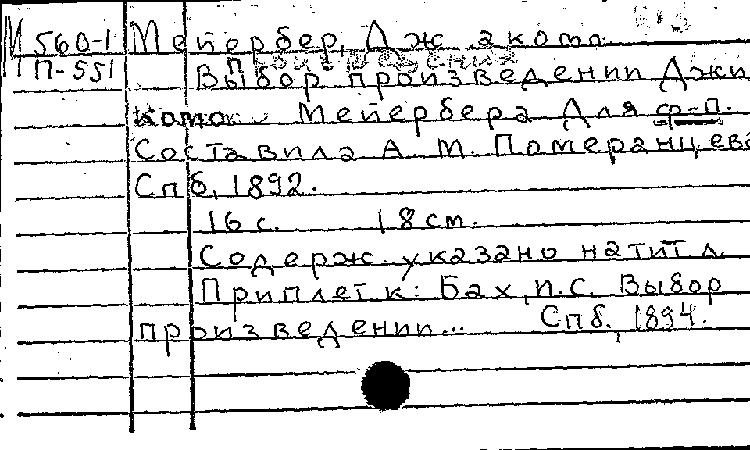 М 560-1 Мейербер, Дж акомо
П-551 Выбор произведений Джи
комо Мейербера Для ф-п.
Составила А. М. Померанцева
Спб, 1892.
16 с. 18 см.
Содерж. указано на тит л.
Приплет к: Бах, И.С. Выбор
произведении... Спб., 1894.